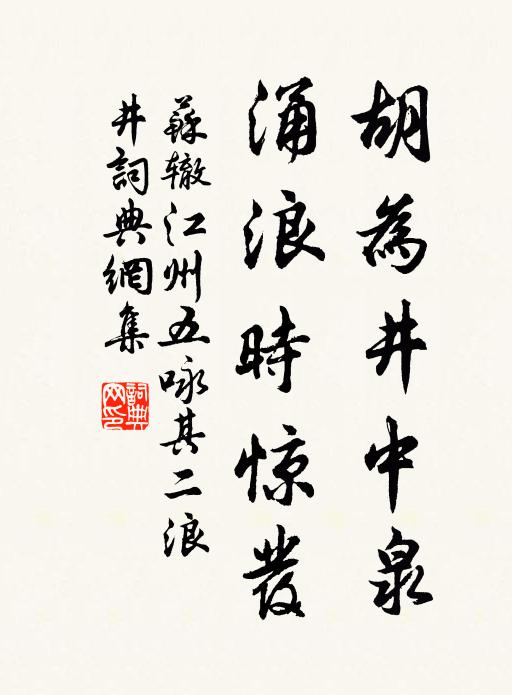 胡為井中泉
涌浪時惊發
蘇辙江州五咏其二浪
井詞典網集
詞典
网印